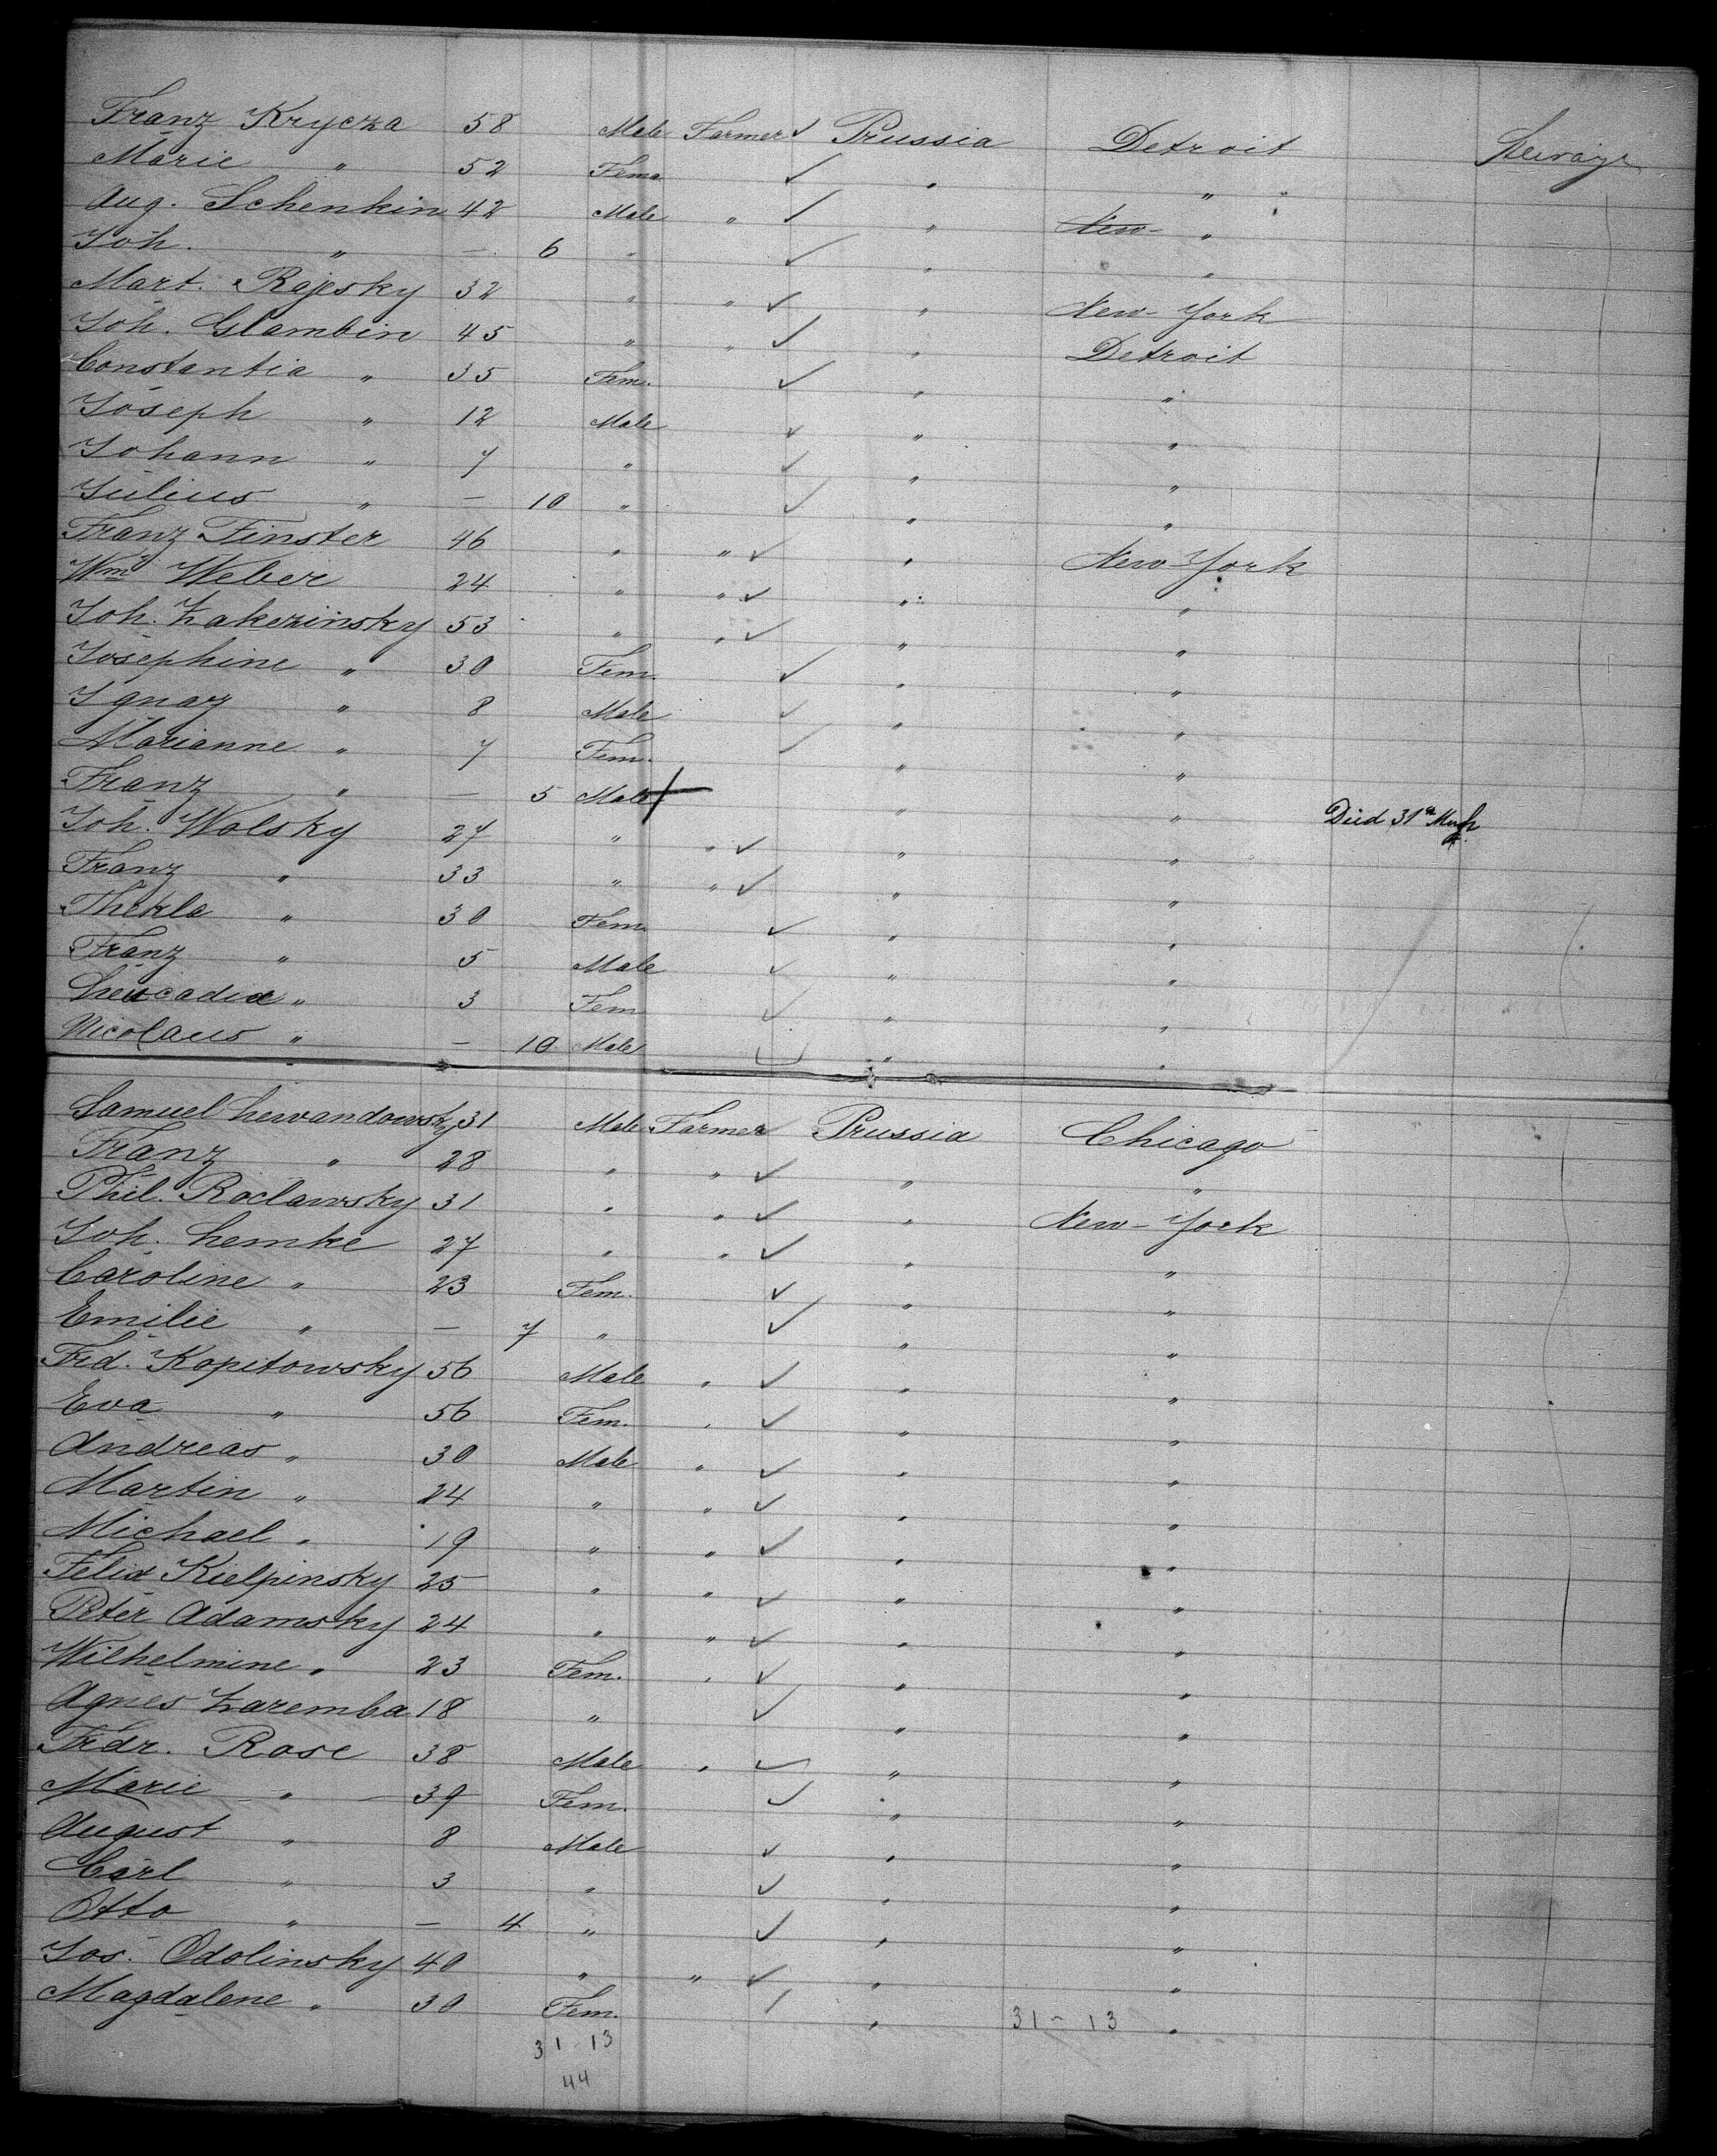 Franz Krycza 58 Male Farmer ✓ Prussia Detroit Steerage
Marie " 52 Fema ✓ " "
Aug. Schenkin 42 Male " ✓ " New- "
Joh. " — 6 " ✓ " "
Mart. Rajesky 32 " " ✓ " New-York
Joh. Glambin 45 " " ✓ " Detroit
Constantia " 35 Fem. ✓ " "
Joseph " 12 Male ✓ " "
Johann " 7 " ✓ " "
Julius " — 10 " ✓ " "
Franz Finster 46 " " ✓ " New-York
Wm Weber 24 " " ✓ " "
Joh. Zakerzinsky 53 " " ✓ " "
Josephine " 30 Fem. ✓ " "
Ignaz " 8 Male ✓ " "
Marianne " 7 Fem. ✓ " "
Franz " — 5 Male + " " Died 31th
Joh. Wolsky 27 " " ✓ " "
Franz " 33 " " ✓ " "
Thekla " 30 Fem. ✓ " "
Franz " 5 Male ✓ " "
Leucadia " 3 Fem ✓ " "
Nicolaus " — 10 Male ✓ " "
Samuel Lewandowsky 31 Male Farmer Prussia Chicago
Franz " 28 " " ✓ " "
Phil. Roclawsky 31 " " ✓ " New-York
Joh. Lemke 27 " " ✓ " "
Caroline " 23 Fem. ✓ " "
Emilie " — 7 " ✓ " "
Frd. Kopitowsky 56 Male " ✓ " "
Eva " 56 Fem. " ✓ " "
Andreas " 30 Male " ✓ " "
Martin " 24 " " ✓ " "
Michael " 19 " " ✓ " "
Felix Kielpinsky 25 " " ✓ " "
Peter Adamsky 24 " " ✓ " "
Wilhelmine " 23 Fem. " ✓ " "
Agnes Zaremba 18 " ✓ " "
Frdr. Rose 38 Male " ✓ " "
Marie " 39 Fem. ✓ " "
August " 8 Male ✓ " "
Carl " 3 " ✓ " "
Otto " — 4 " ✓ " "
Jos. Odolinsky 40 " " ✓ " "
Magdalene " 30 Fem. / " 31-13 "
31-13
44